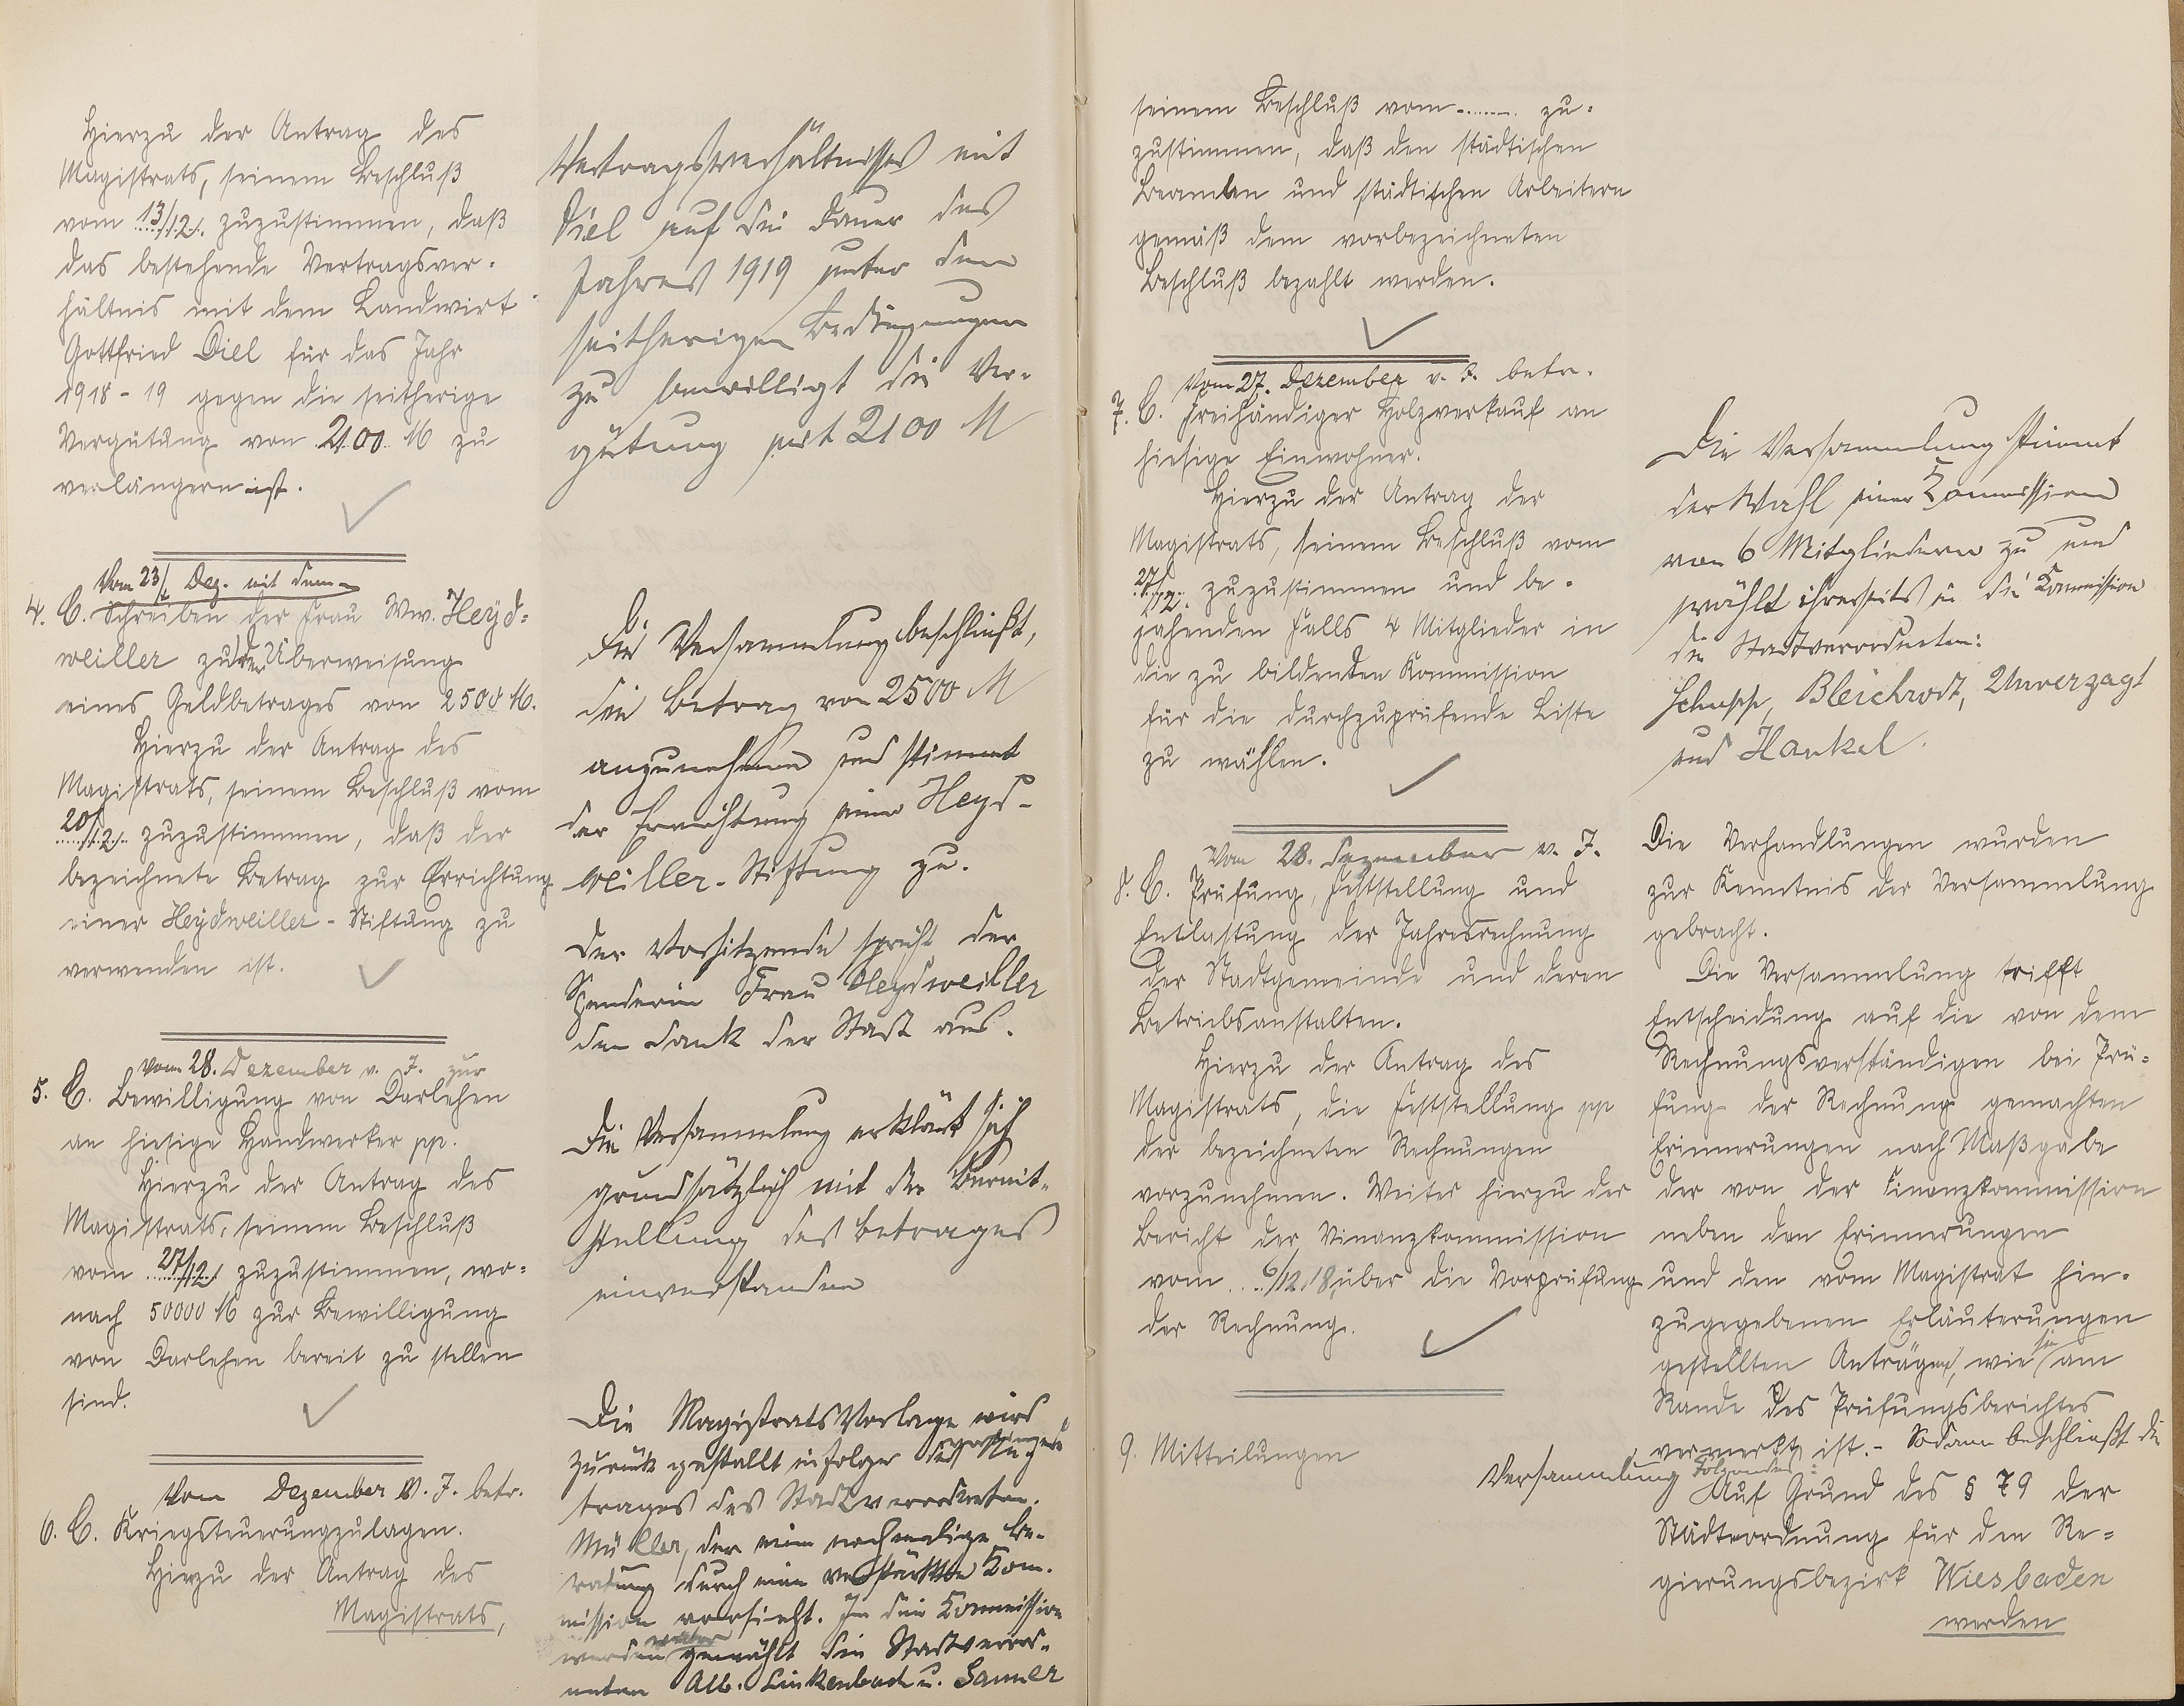 Hierzu der Antrag des
Magistrats, seinem Beschluß
vom 13/12. zuzustimmen, daß
das bestehende Vertragsver-
hältnis mit dem Landwirt
Gottfried Diel für das Jahr
1918-19 gegen die seitherige
Vergütung von 2100 M zu
verlängern ist.
Vom 23/ Dez. mit dem
4. C. Schreiben der Frau Ww. Heyd-
weiller zu der Überweisung
eines Geldbetrages von 2500 M.
Hierzu der Antrag des
Magistrats, seinem Beschluß vom
20/12. zuzustimmen, daß der
bezeichnete Betrag zur Errichtung
einer Heydweiller-Stiftung zu
verwenden ist.
vom 28. Dezember v. J. zur
5. C. Bewilligung von Darlehen
an hiesige Handwerker pp.
Hierzu der Antrag des
Magistrats, seinem Beschluß
vom 27/12. zuzustimmen, wo-
nach 50000 M zur Bewilligung
von Darlehen bereit zu stellen
sind.
Vom Dezember v. J. betr.
6. C. Kriegsteuerungzulagen.
Hierzu der Antrag des
Magistrats,
Vertragsverhältnisses mit
Diel auf die Dauer des
Jahres 1919 unter den
seitherigen Bedingungen
zu bewilligt die Ver-
gütung mit 2100 M
Die Versammlung beschließt,
den Betrag von 2500 M
anzunehmen und stimmt
der Errichtung einer Heyd-
weiller-Stiftung zu.
Der Vorsitzende spricht der
Spenderin Frau Heydweiller
den Dank der Stadt aus.
Die Versammlung erklärt sich
grundsätzlich mit der Bereit-
stellung des Betrages
einverstanden
Die Magistratsvorlage wird
zurück gestellt infolge des
trages des Stadtverordneten
Müller, der eine nochmalige Be-
ratung durch eine verstärkte Kom-
mission vorsieht. In die Kommission
werden weiter gewählt die Stadtverord-
neten Alb. Linkenbach u. Sanner
seinem Beschluß vom ........ zu-
zustimmen, daß den städtischen
Beamten und städtischen Arbeitern
gemäß dem vorbezeichneten
Beschluß bezahlt werden.
Vom 27. Dezember v. J. betr.
7. C. Freihändiger Holzverkauf an
hiesige Einwohner.
Hierzu der Antrag der
Magistrats, seinem Beschluß vom
27/12. zuzustimmen und be-
jahenden Falls 4 Mitglieder in
die zu bildenden Kommission
für die durchzuprüfende Liste
zu wählen.
Vom 28. Dezember v. J.
8. C. Prüfung, Feststellung und
Entlastung der Jahresrechnung
der Stadtgemeinde und deren
Betriebsanstalten.
Hierzu der Antrag des
Magistrats, die Feststellung pp
der bezeichneten Rechnungen
vorzunehmen. Weiter hierzu der
Bericht der Finanzkommission
vom 6/12.18 über die Vorprüfung
der Rechnung.
9. Mitteilungen
Die Versammlung stimmt
der Wahl einer Kommission
von 6 Mitgliedern zu und
wählt ihrerseits in die Kommission
die Stadtverordneten:
Schupp, Bleichrodt, Unverzagt
und Hankel.
Die Verhandlungen wurden
zur Kenntnis der Versammlung
gebracht.
Die Versammlung trifft
Entscheidung auf die von dem
Rechnungsverständigen bei Prü-
fung der Rechnung gemachten
Erinnerungen nach Maßgabe
der von der Finanzkommission
neben den Erinnerungen
und den vom Magistrat hin-
zugegebenen Erläuterungen
gestellten Anträgen, wie sie am
Rande des Prüfungsberichtes
vermerkt ist. - Sodann beschließt die
Versammlung Folgendes:
Auf Grund des § 79 der
Städteordnung für den Re-
gierungsbezirk Wiesbaden
werden